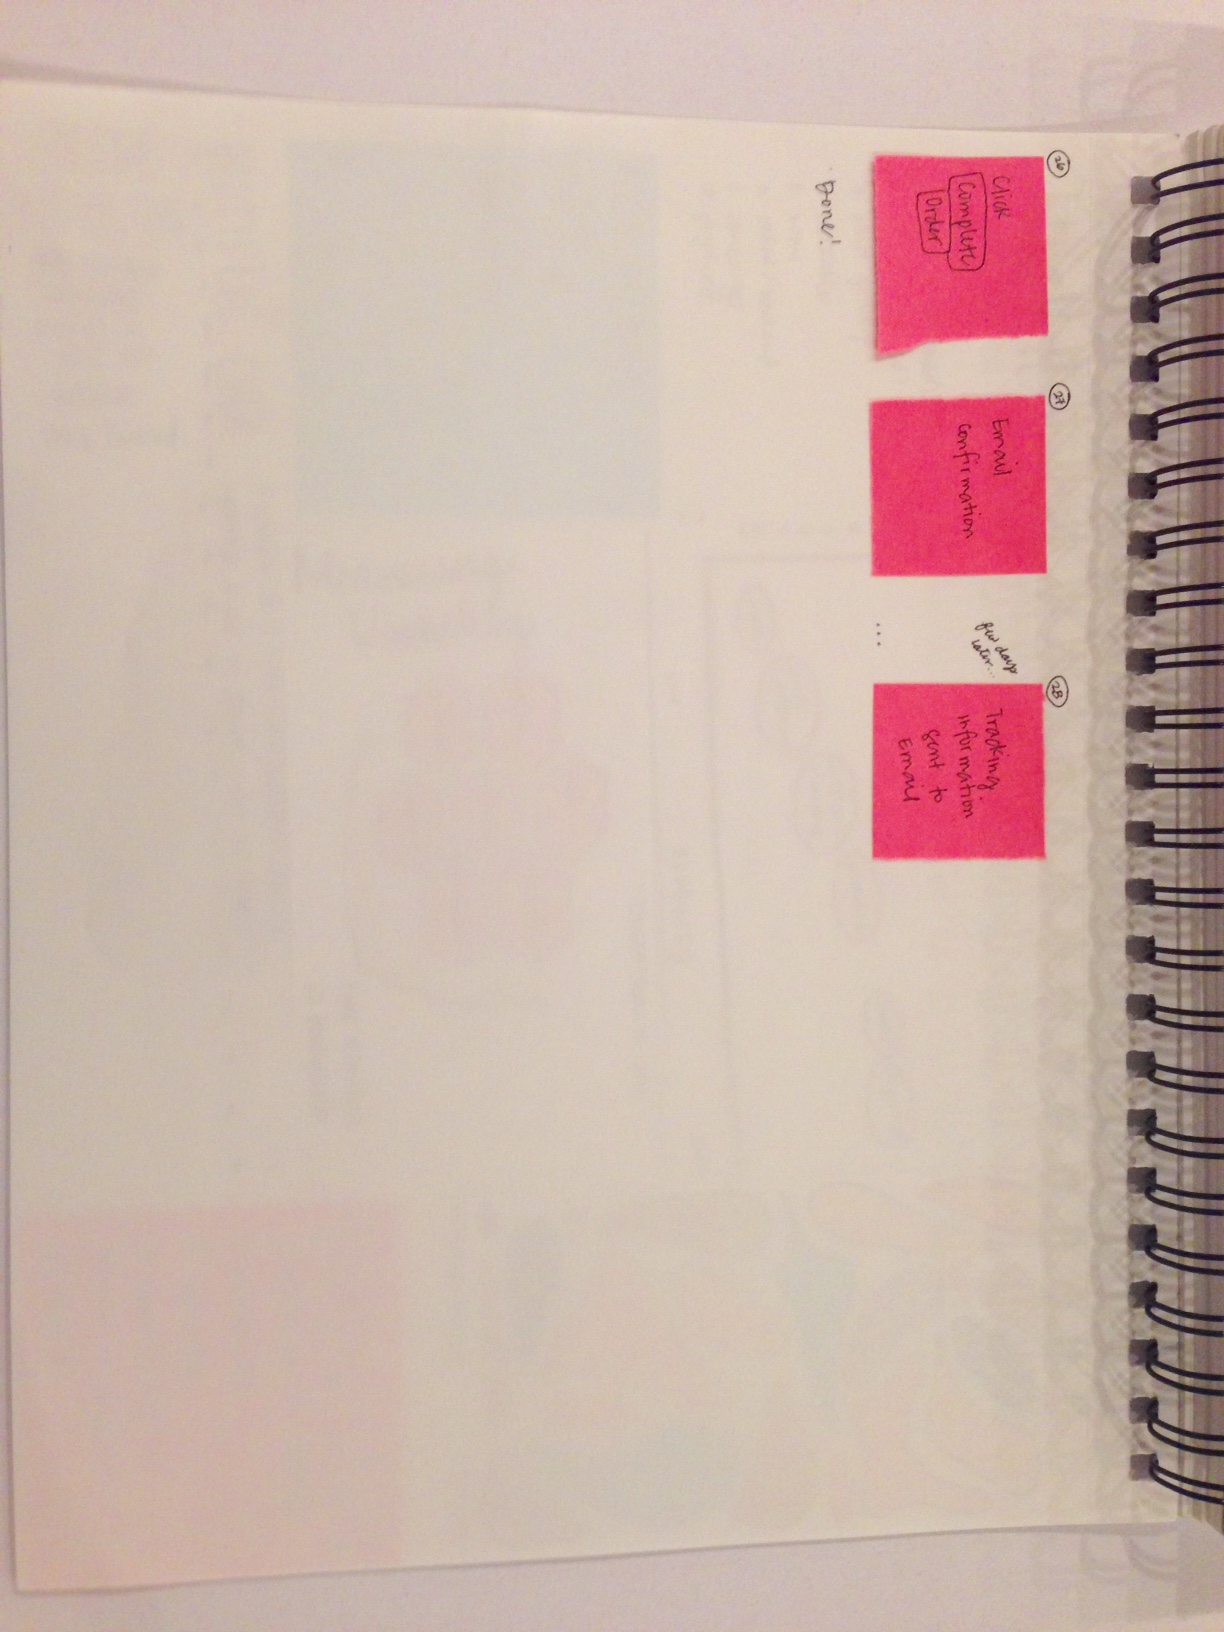 26
Click
Complete
Order
• Done!
27
Email
confirmation
...
few days
later...
28
Tracking
information
sent to
Email